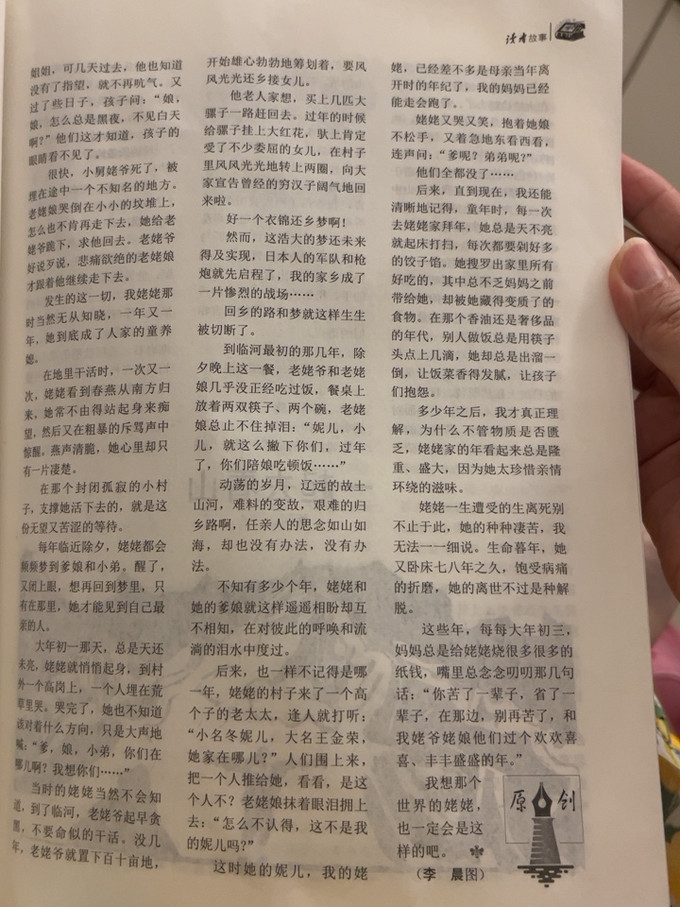 读者故事
姐姐，可几天过去，他也知道
没有了指望，就不再吭气。又
过了些日子，孩子问：“娘，
娘，怎么总是黑夜，不见白天
啊？”他们这才知道，孩子的
眼睛看不见了。
很快，小舅姥爷死了，被
埋在途中一个不知名的地方。
老姥娘哭倒在小小的坟堆上，
怎么也不肯再走下去，她给老
姥爷跪下，求他回去。老姥爷
好说歹说，悲痛欲绝的老姥娘
才跟着他继续走下去。
发生的这一切，我姥姥那
时当然无从知晓，一年又一
年，她到底成了人家的童养
媳。
在地里干活时，一次又一
次，姥姥看到春燕从南方归
来，她常不由得站起身来痴
望，然后又在粗暴的斥骂声中
惊醒。燕声清脆，她心里却只
有一片凄楚。
在那个封闭孤寂的小村
子，支撑她活下去的，就是这
份无望又苦涩的等待。
每年临近除夕，姥姥都会
频频梦到爹娘和小弟。醒了，
又闭上眼，想再回到梦里，只
有在那里，她才能见到自己最
亲的人。
大年初一那天，总是天还
未亮，姥姥就悄悄起身，到村
外一个高岗上，一个人埋在荒
草里哭。哭完了，她也不知道
该对着什么方向，只是大声地
喊：“爹，娘，小弟，你们在
哪儿啊？我想你们……”
当时的姥姥当然不会知
道，到了临河，老姥爷起早贪
黑，不要命似的干活。没几
年，老姥爷就置下百十亩地，
开始雄心勃勃地筹划着，要风
风光光还乡接女儿。
他老人家想，买上几匹大
骡子一路赶回去。过年的时候
给骡子挂上大红花，驮上肯定
受了不少委屈的女儿，在村子
里风风光光地转上两圈，向大
家宣告曾经的穷汉子阔气地回
来啦。
好一个衣锦还乡梦啊！
然而，这浩大的梦还未来
得及实现，日本人的军队和枪
炮就先启程了，我的家乡成了
一片惨烈的战场……
回乡的路和梦就这样生生
被切断了。
到临河最初的那几年，除
夕晚上这一餐，老姥爷和老姥
娘几乎没正经吃过饭，餐桌上
放着两双筷子、两个碗，老姥
娘总止不住掉泪：“妮儿，小
儿，就这么撇下你们，过年
了，你们陪娘吃顿饭……”
动荡的岁月，辽远的故土
山河，难料的变故，艰难的归
乡路啊，任亲人的思念如山如
海，却也没有办法，没有办
法。
不知有多少个年，姥姥和
她的爹娘就这样遥遥相盼却互
不相知，在对彼此的呼唤和流
淌的泪水中度过。
后来，也一样不记得是哪
一年，姥姥的村子来了一个高
个子的老太太，逢人就打听：
“小名冬妮儿，大名王金荣，
她家在哪儿？”人们围上来，
把一个人推给她，看看，是这
个人不？老姥娘抹着眼泪拥上
去：“怎么不认得，这不是我
的妮儿吗？”
这时她的妮儿，我的姥
姥，已经差不多是母亲当年离
开时的年纪了，我的妈妈已经
能走会跑了。
姥姥又哭又笑，抱着她娘
不松手，又着急地东看西看，
连声问：“爹呢？弟弟呢？”
他们全都没了……
后来，直到现在，我还能
清晰地记得，童年时，每一次
去姥姥家拜年，她总是天不亮
就起床打扫，每次都要剁好多
的饺子馅。她搜罗出家里所有
好吃的，其中总不乏妈妈之前
带给她，却被她藏得变质了的
食物。在那个香油还是奢侈品
的年代，别人做饭总是用筷子
头点上几滴，她却总是出溜一
倒，让饭菜香得发腻，让孩子
们抱怨。
多少年之后，我才真正理
解，为什么不管物质是否匮
乏，姥姥家的年看起来总是隆
重、盛大，因为她太珍惜亲情
环绕的滋味。
姥姥一生遭受的生离死别
不止于此，她的种种凄苦，我
无法一一细说。生命暮年，她
又卧床七八年之久，饱受病痛
的折磨，她的离世不过是种解
脱。
这些年，每每大年初三，
妈妈总是给姥姥烧很多很多的
纸钱，嘴里总念念叨叨那几句
话：“你苦了一辈子，省了一
辈子，在那边，别再苦了，和
我姥爷姥娘他们过个欢欢喜
喜、丰丰盛盛的年。”
我想那个
世界的姥姥，
也一定会是这
样的吧。
（李 晨图）
原创